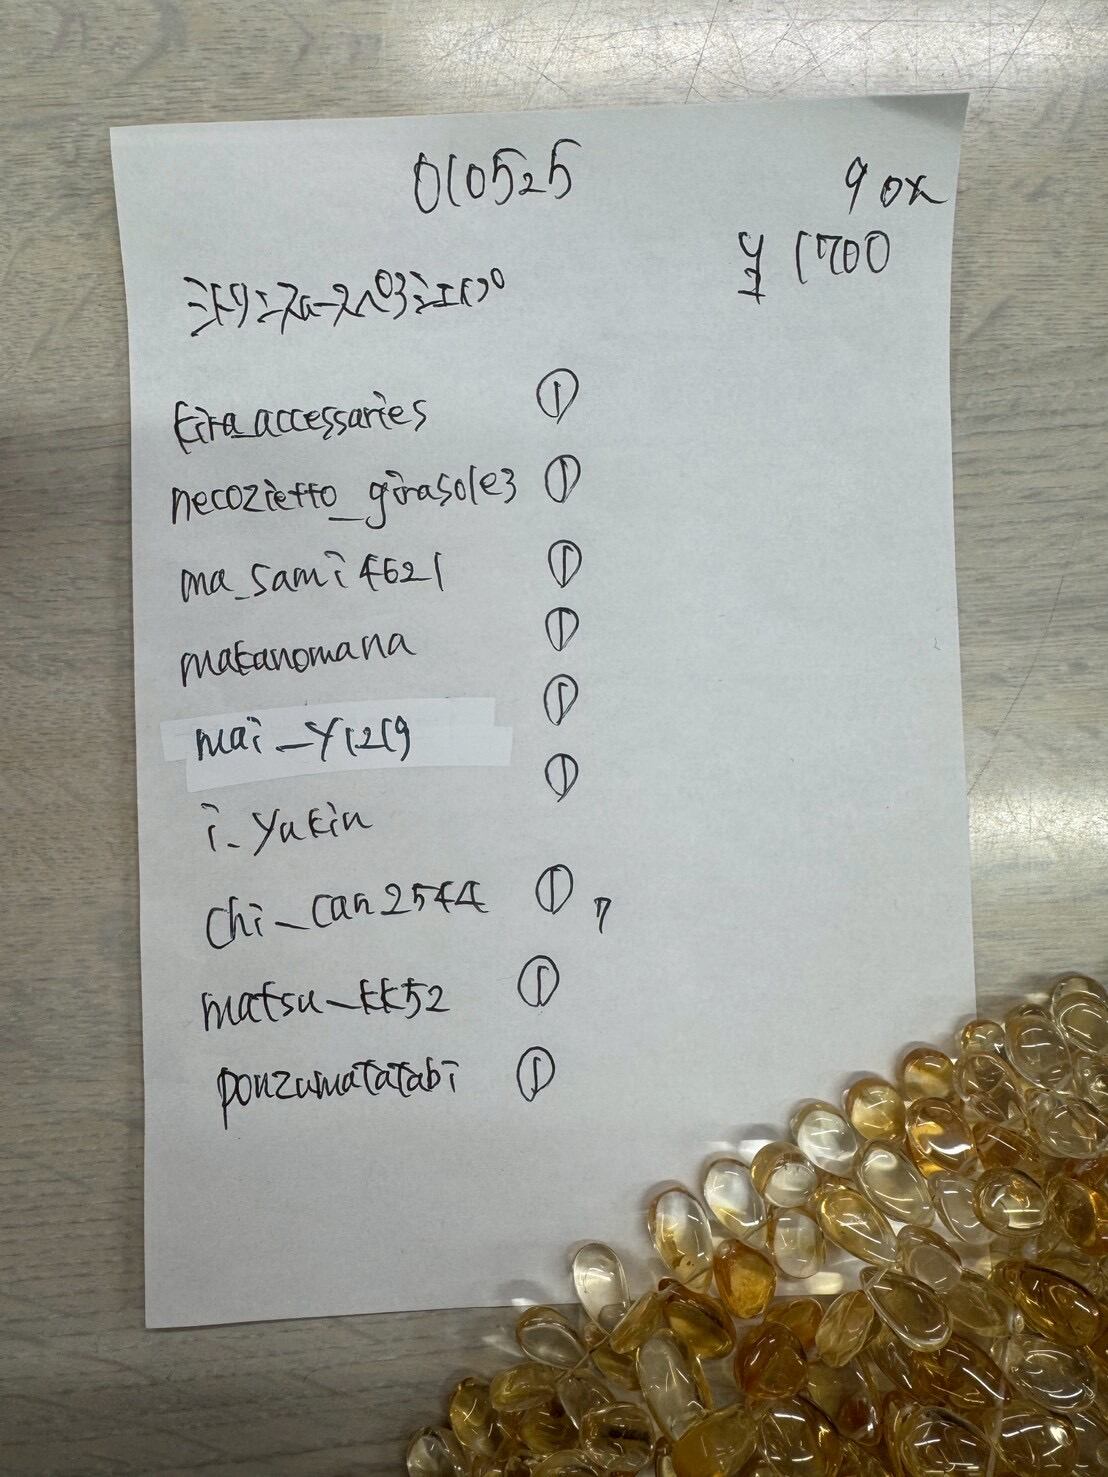 010525
9 ox
¥1700
シトリンスムースペアシェイプ
kira_accessaries ①
necozietto_girasole3 ①
ma_sami4621 ①
makanomana ①
mai_y1219 ①
i_yukin ①
chi_can2544 ① 7
matsu_kk52 ①
ponzumatatabi ①